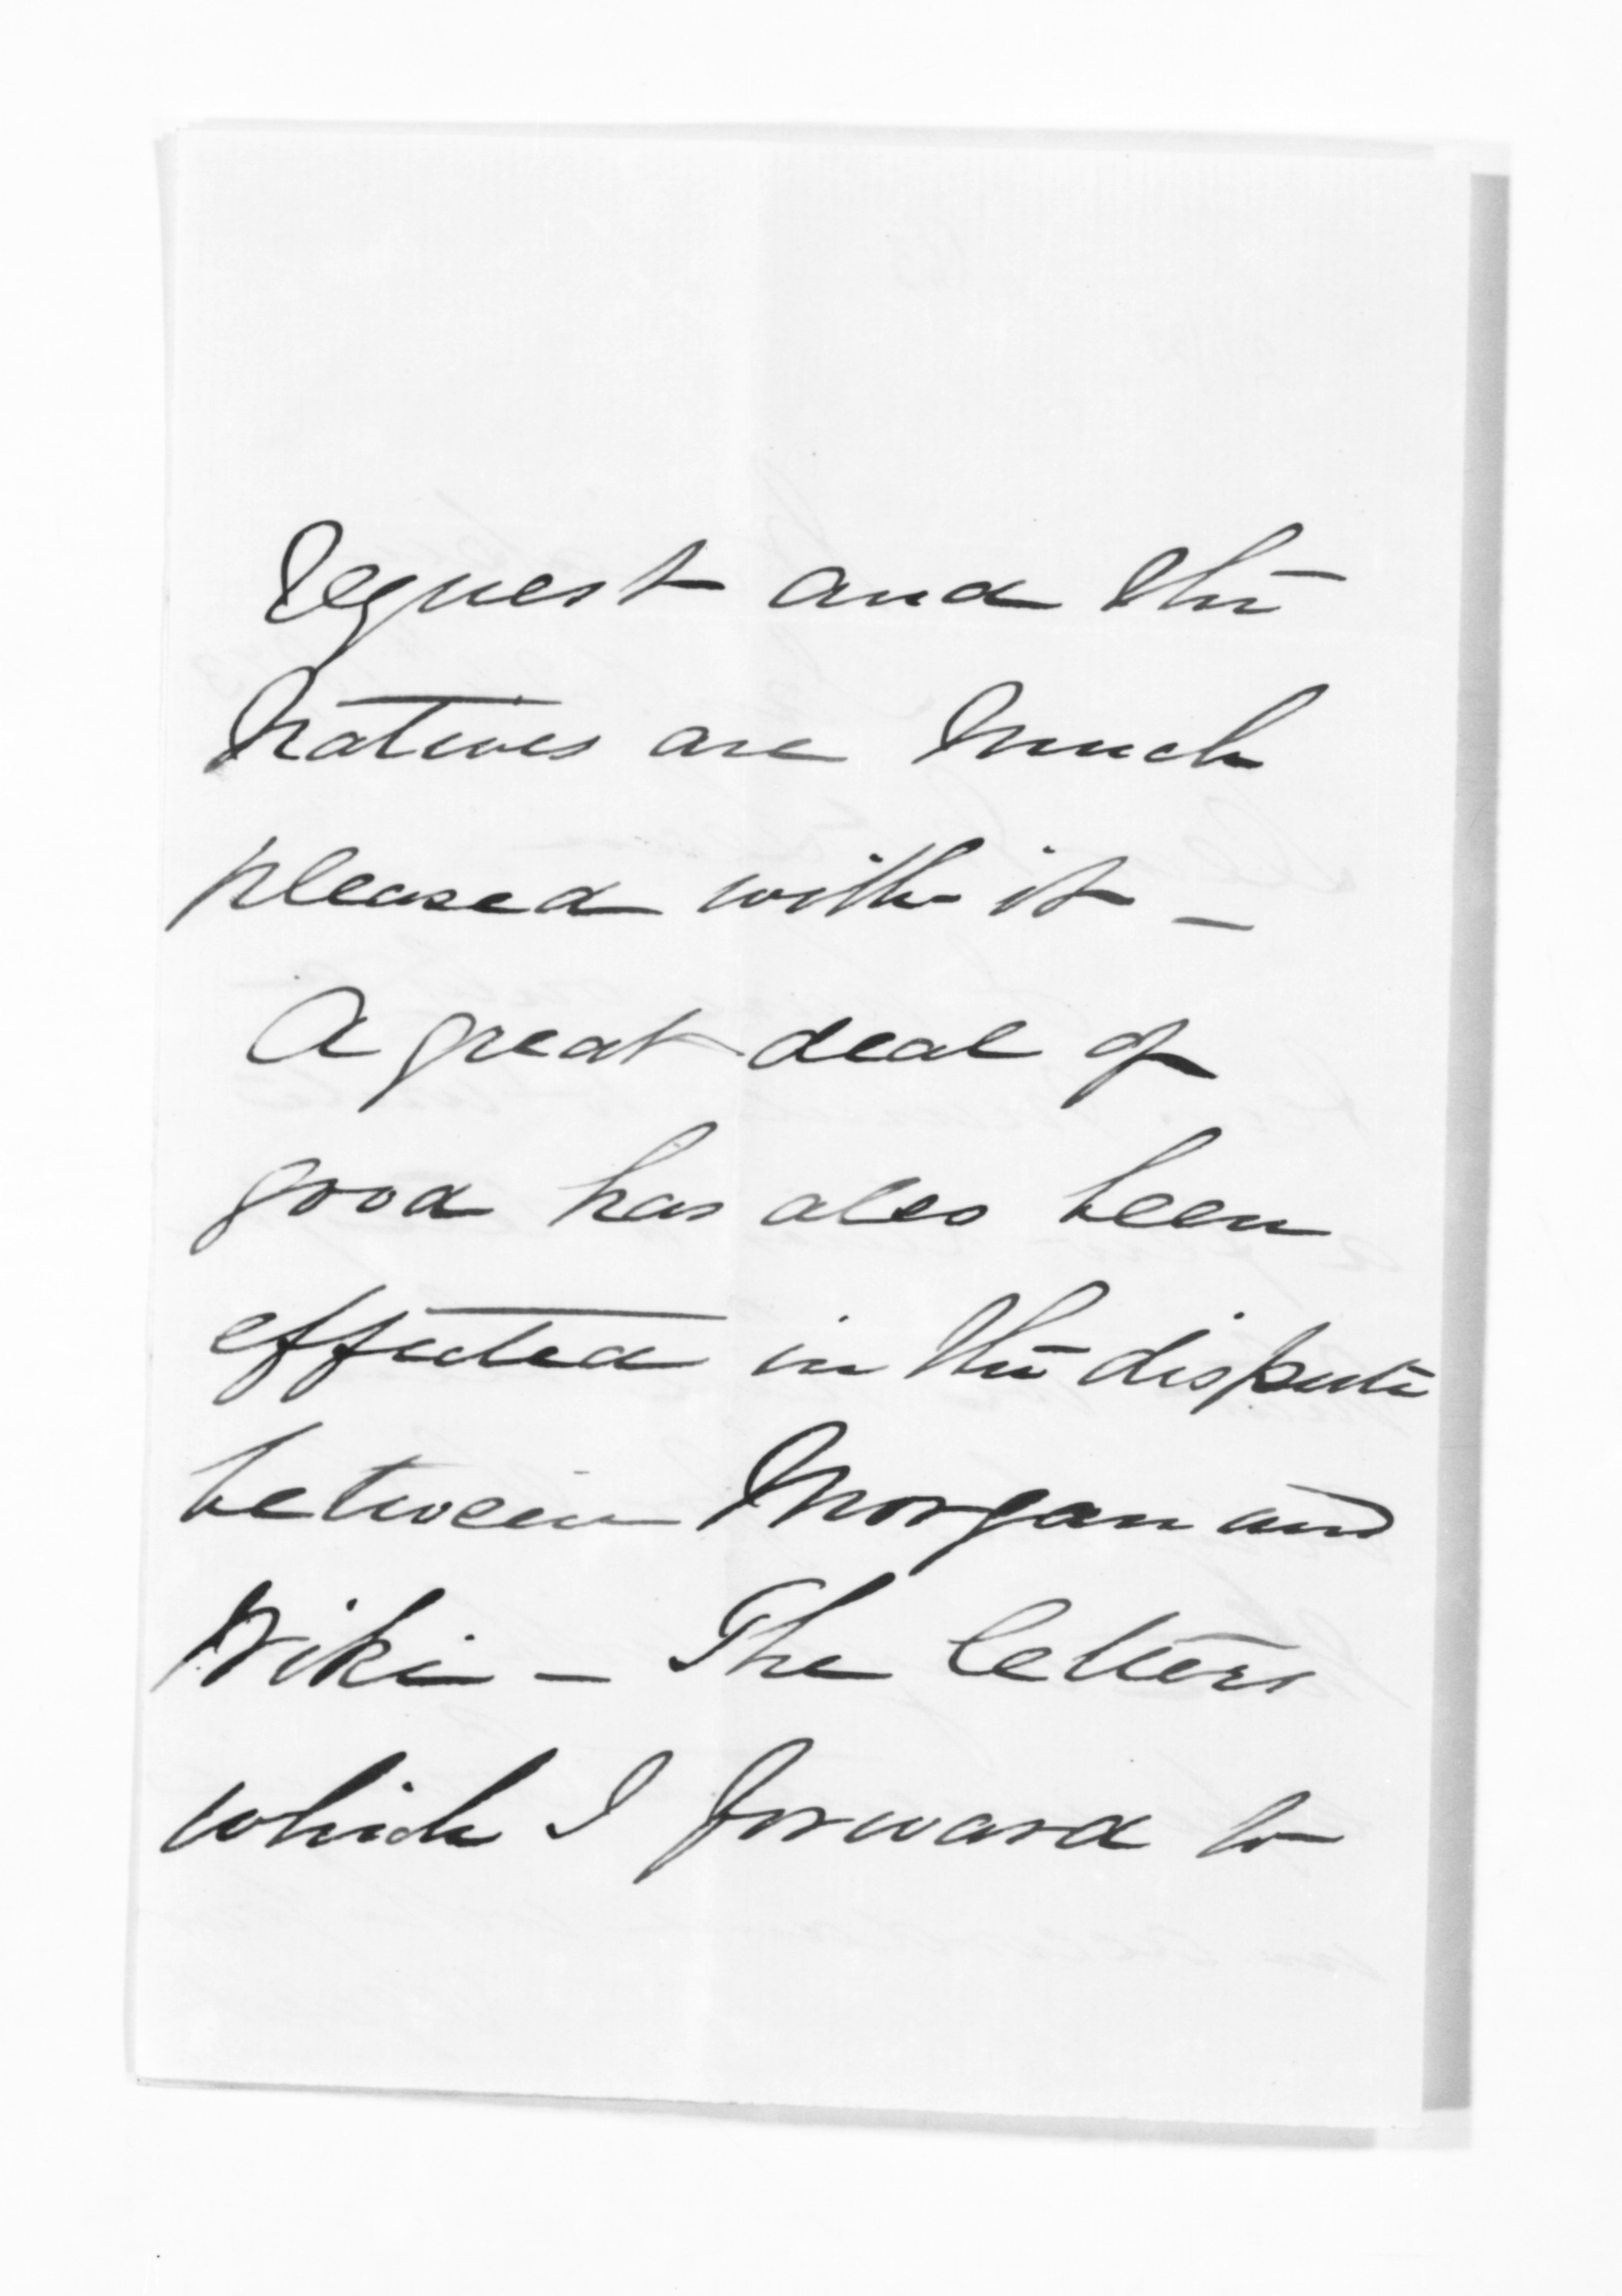 request and the
Natives are much
pleased with it –
A great deal of
good has also been
effected in the dispute
between Morgan and
Wiki – The letters
which I forward to